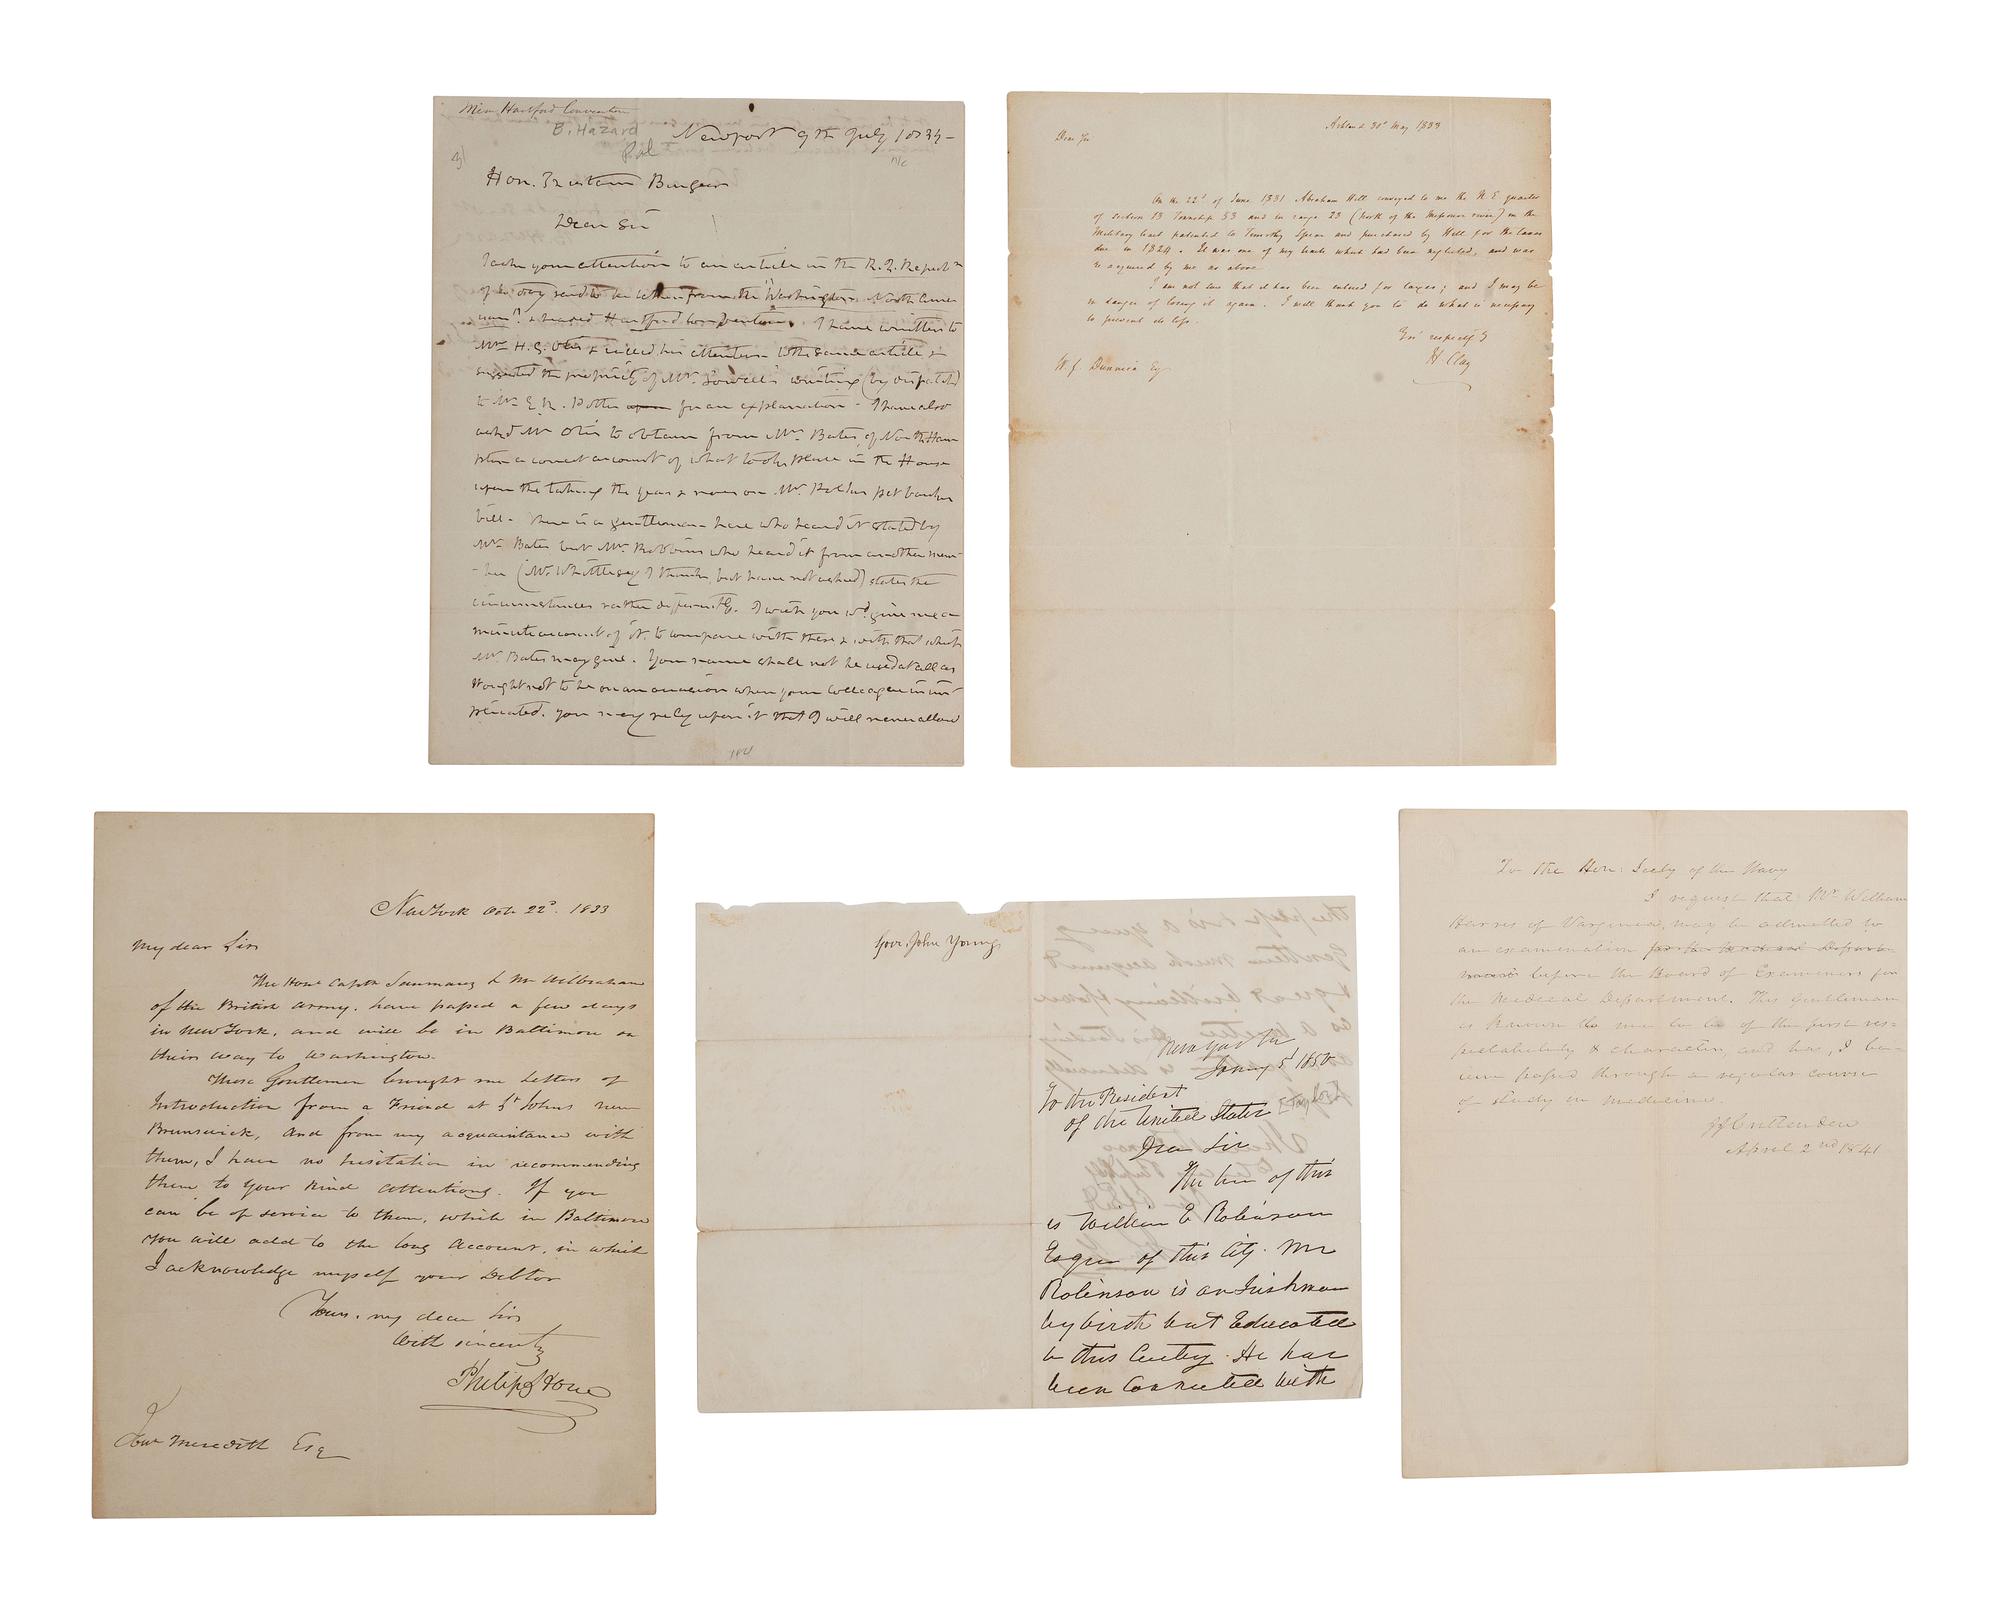 Mem. Hartford Convention
B. Hazard
Newport 9th July 1834 -
Hon. Tristam Burges
Dear Sir
I ask your attention to an article in the R.I. Repubn
of to day said to be taken from the Washington North Amer
ican & headed Hartford Convention. I have written to
Mr H. G. Otis & called his attention to the same article &
suggested the propriety of Mr. Lowell's writing (by dispatch)
to Mr E. R. Potter upon for an explanation - I have also
asked Mr Otis to obtain from Mr. Bates, of North Ham
pton a correct account of what took place in the House
upon the taking the yeas & nays on Mr. Potters pet banks
bill - There is a gentleman here who heard it stated by
Mr. Bates but Mr. Robbins who heard it from another mem-
-ber (Mr. Whittlesey I think, but have not asked) states the
circumstances rather differently. I wish you wd. give me a
minute account of it, to compare with these & with that which
Mr Bates may give. Your name shall not be used at all as
it ought not to be on an occasion when your colleague is im-
plicated. you may rely upon it that I will never allow
Ashland 30th May 1833
Dear Sir
On the 22d of June 1831 Abraham Hill conveyed to me the N. E. quarter
of section 13 Township 53 and in range 23 (north of the Missouri river) in the
Military tract patented to Timothy Spear and purchased by Hill for the taxes
due in 1824. It was one of my tracts which had been neglected, and was
re acquired by me as above
I am not sure that it has been entered for taxes; and I may be
in danger of losing it again. I will thank you to do what is necessary
to prevent its loss.
Yrs respectfy
H. Clay
W. J. Dunnica Esq
New York Octr 22d. 1833
My dear Sir
The Honl Captn Saumarez & Mr Wilbraham
of the British Army, have passed a few days
in New York, and will be in Baltimore on
their way to Washington.
These Gentlemen brought me Letters of
Introduction from a Friend at St Johns New
Brunswick, and from my acquaintance with
them, I have no hesitation in recommending
them to your kind attentions. If you
can be of service to them, while in Baltimore
you will add to the long Account, in which
I acknowledge myself your Debtor
Yours, my dear Sir
With sincerity
Philip Hone
Jonn Meredith Esq
Govr. John Young
New York City
Jany 5th 1850
To the President
of the United States
Dear Sir
The bearer of this
is William E Robinson
Esquire of this City. Mr
Robinson is an Irishman
by birth but Educated
in this Country. He has
been connected with
To the Hon: Secty of the Navy
I request that Mr William
Harris of Virginia, may be admitted to
an examination for the Medical Depart-
ment before the Board of Examiners for
the Medical Department. This gentleman
is known to me to be of the first res-
pectability & character and has, I be-
lieve passed through a regular course
of study in medicine.
J J Crittenden
April 2nd 1841